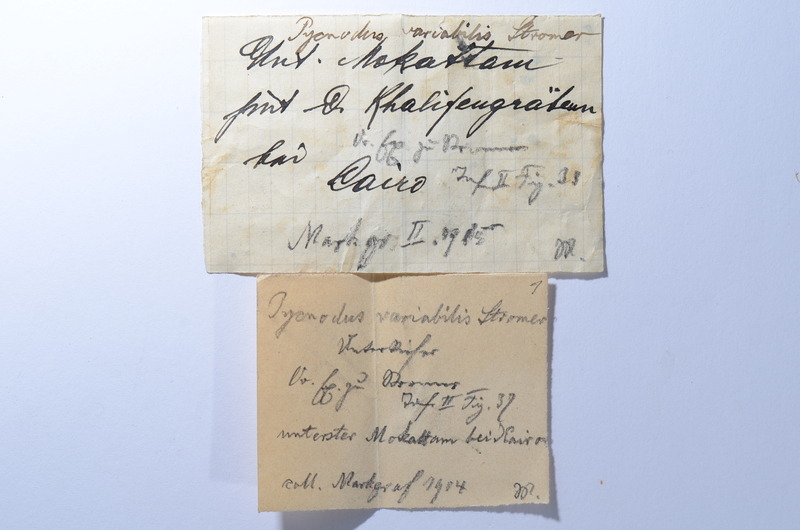 Pycnodus variabilis Stromer
Unt. Mokattam
Khalifengräbern
bei
Cairo
Taf. II Fig. 33
Markgr. II. 1905
1
Pycnodus variabilis Stromer
Unterkiefer
Taf. II Fig. 37
unterster Mokattam bei Kairo
coll. Markgraf 1904